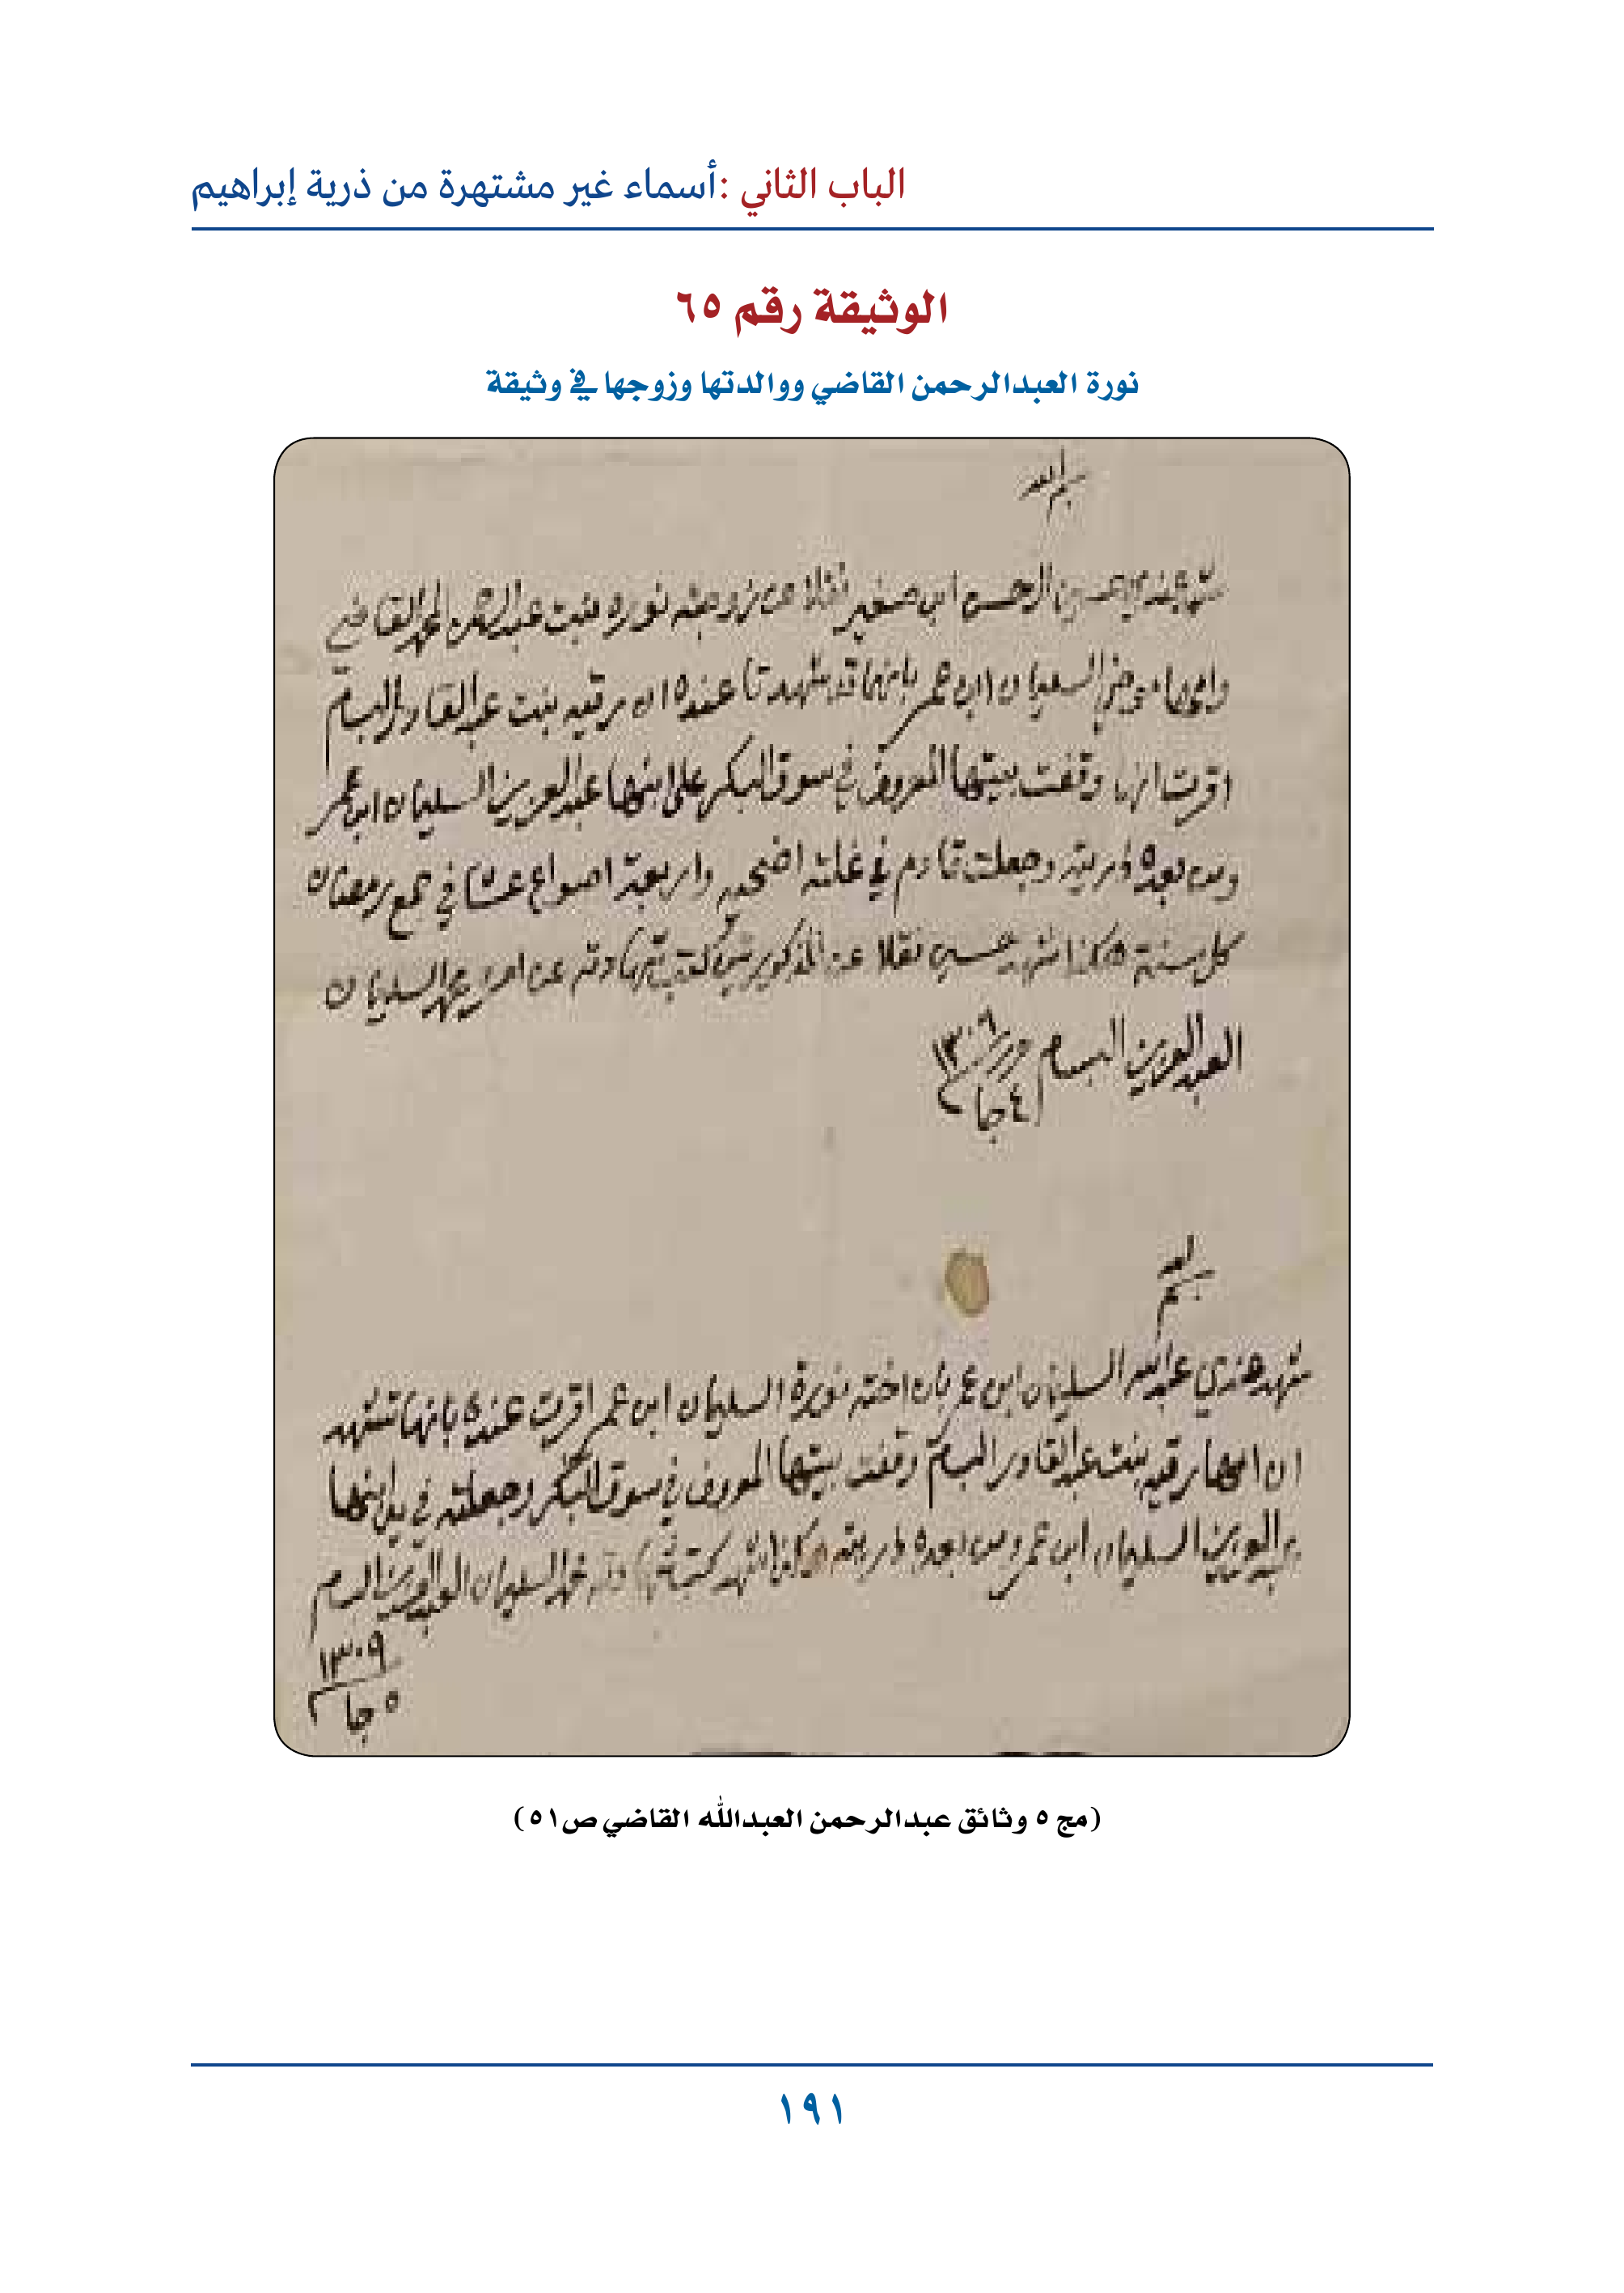 الباب الثاني :أسماء غير مشتهرة من ذرية إبراهيم
الوثيقة رقم ٦٥
نورة العبدالرحمن القاضي ووالدتها وزوجها في وثيقة
بسم الله
شهد عندي حسين الرحسن ابن صغير نقلا عن زوجته نوره بنت عبدالرحمن المحمد القاضي
وامها موضي السليمان ابن عمر بانهما قد شهدتا عنده ان رقيه بنت عبدالقادر البسام
اقرت انها وقفت بيتها المعروف في سوق البكر على ابنها عبدالعزيز السليمان ابن عمر
ومن بعده ذريته وجعلت قادم في غلته اضحيه واربعة اصواع عشا في جمع رمضان
كل سنة هكذا شهد حسين نقلا عن المذكورتين كتب شهادته عن امره محمد السليمان
العبدالعزيز البسام وور ١٣٠٩
١٤ جا ٢
بسم الله
شهد عندي عبدالله السليمان ابن عمر بان اخته نورة السليمان ابن عمر اقرت عنده بانها تشهد
ان امها رقيه بنت عبدالقادر البسام وقفت بيتها المعروف في سوق البكر وجعلته في يد ابنها
عبدالعزيز السليمان ابن عمر ومن بعده ذريته هكذا شهد كتب شهادته محمد السليمان العبدالعزيز البسام
١٣٠٩
٥ جا ٢
(مج ٥ وثائق عبدالرحمن العبدالله القاضي ص٥١)
١٩١